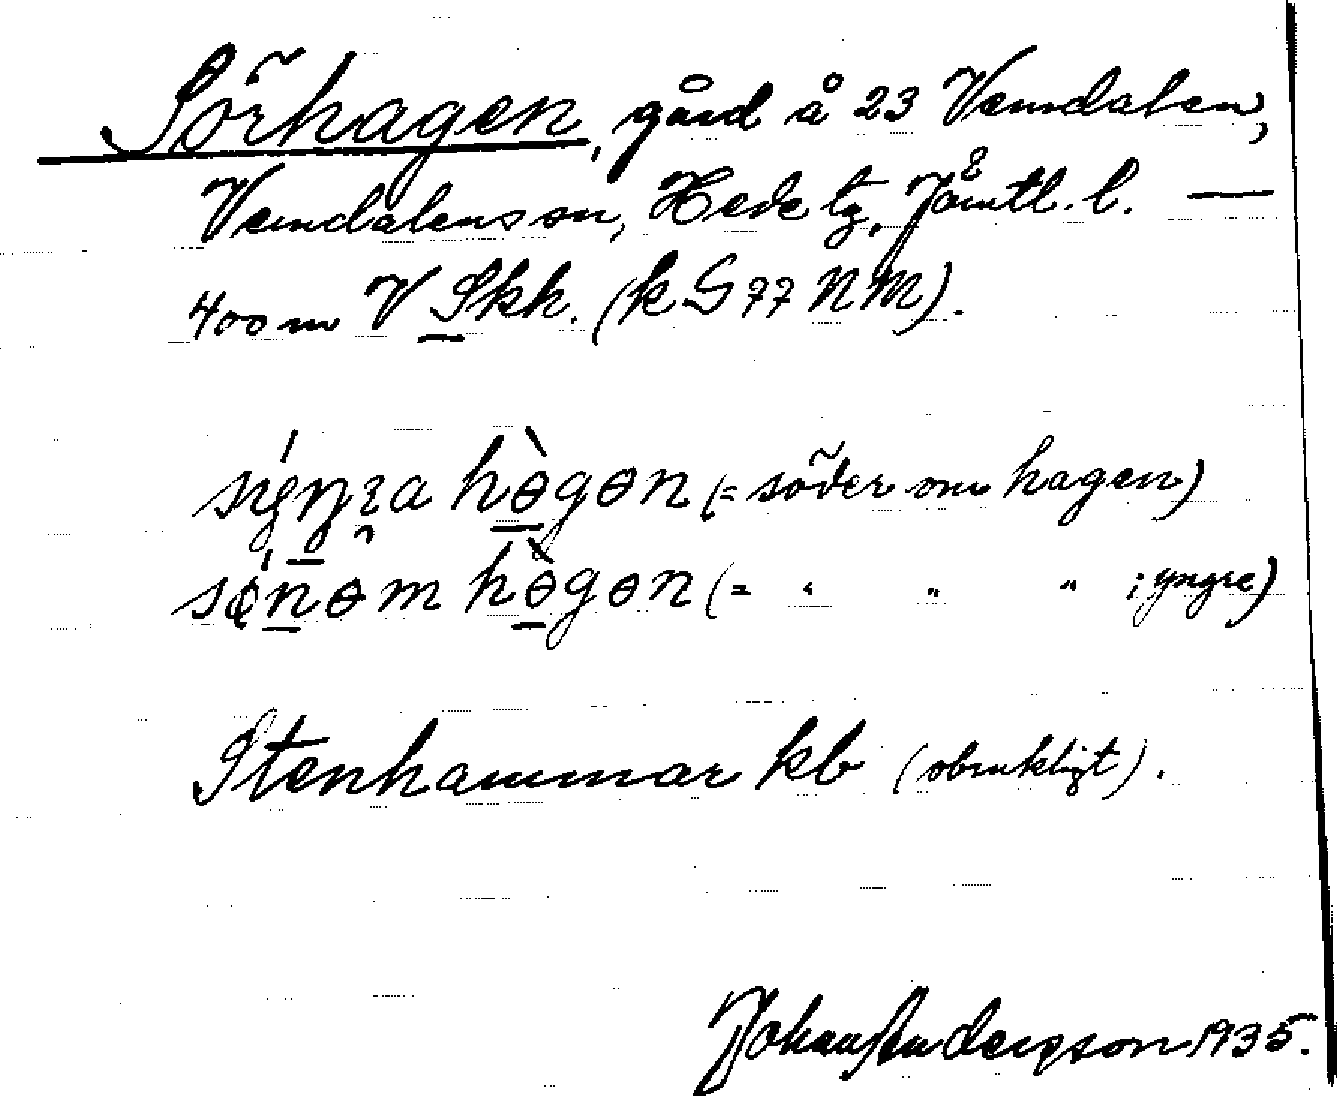 Sörhagen, gård å 23 Vemdalen,
Vemdalens sn, Hede tg, Jämtl. l. —
400 m V Skk. (k S 77 NM).
hògən (= söder om hagen)
hògən (= " " " ; yngre)
Stenhammar kb (obrukligt).
Johan Anderson 1935.